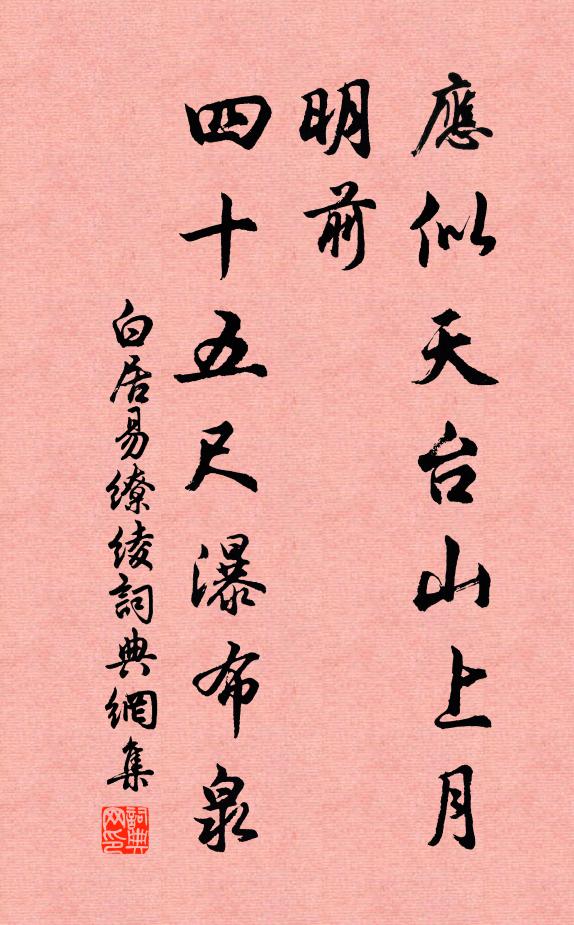 應似天台山上月
明前
四十五尺瀑布泉
白居易繚綾詞典網集
詞典网印